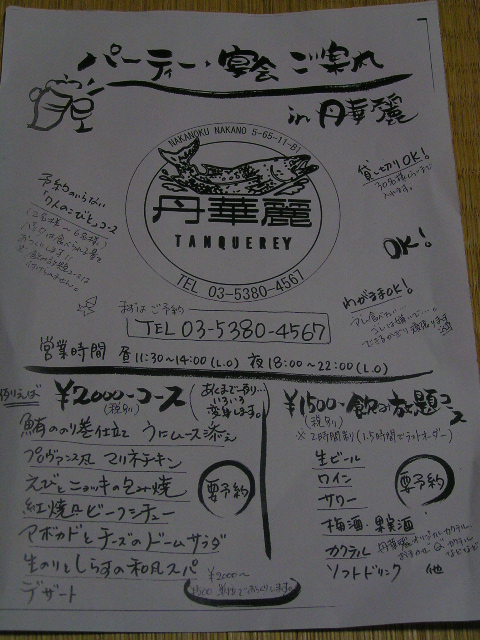 パーティー・宴会 ご案内
in 丹華麗
NAKANOKU NAKANO 5-65-11-B1
丹華麗
TANQUEREY
TEL 03-5380-4567
予約のいらない
「7人のこびと」コース
(2名様〜6名様)
貸し切りOK!
30名様
OK!
わがままOK!
まずはご予約
TEL 03-5380-4567
営業時間 昼11:30~14:00(L.O) 夜18:00~22:00(L.O)
例えば ¥2000-コース
(税別)
(あくまで一例…
いろいろ
変わります。)
鮪ののり巻仕立て うにムース添え
プロヴァンス風 マリネチキン
えびとニョッキの包み焼
紅焼風ビーフシチュー
アボカドとチーズのドームサラダ
生のりとしらすの和風スパ
デザート
要予約
¥2000~
¥1500-飲み放題コース
(税別)
※2時間制(1.5時間でラストオーダー)
生ビール
ワイン
サワー
梅酒・果実酒
カクテル
ソフトドリンク 他
要予約
丹華麗オリジナルカクテル